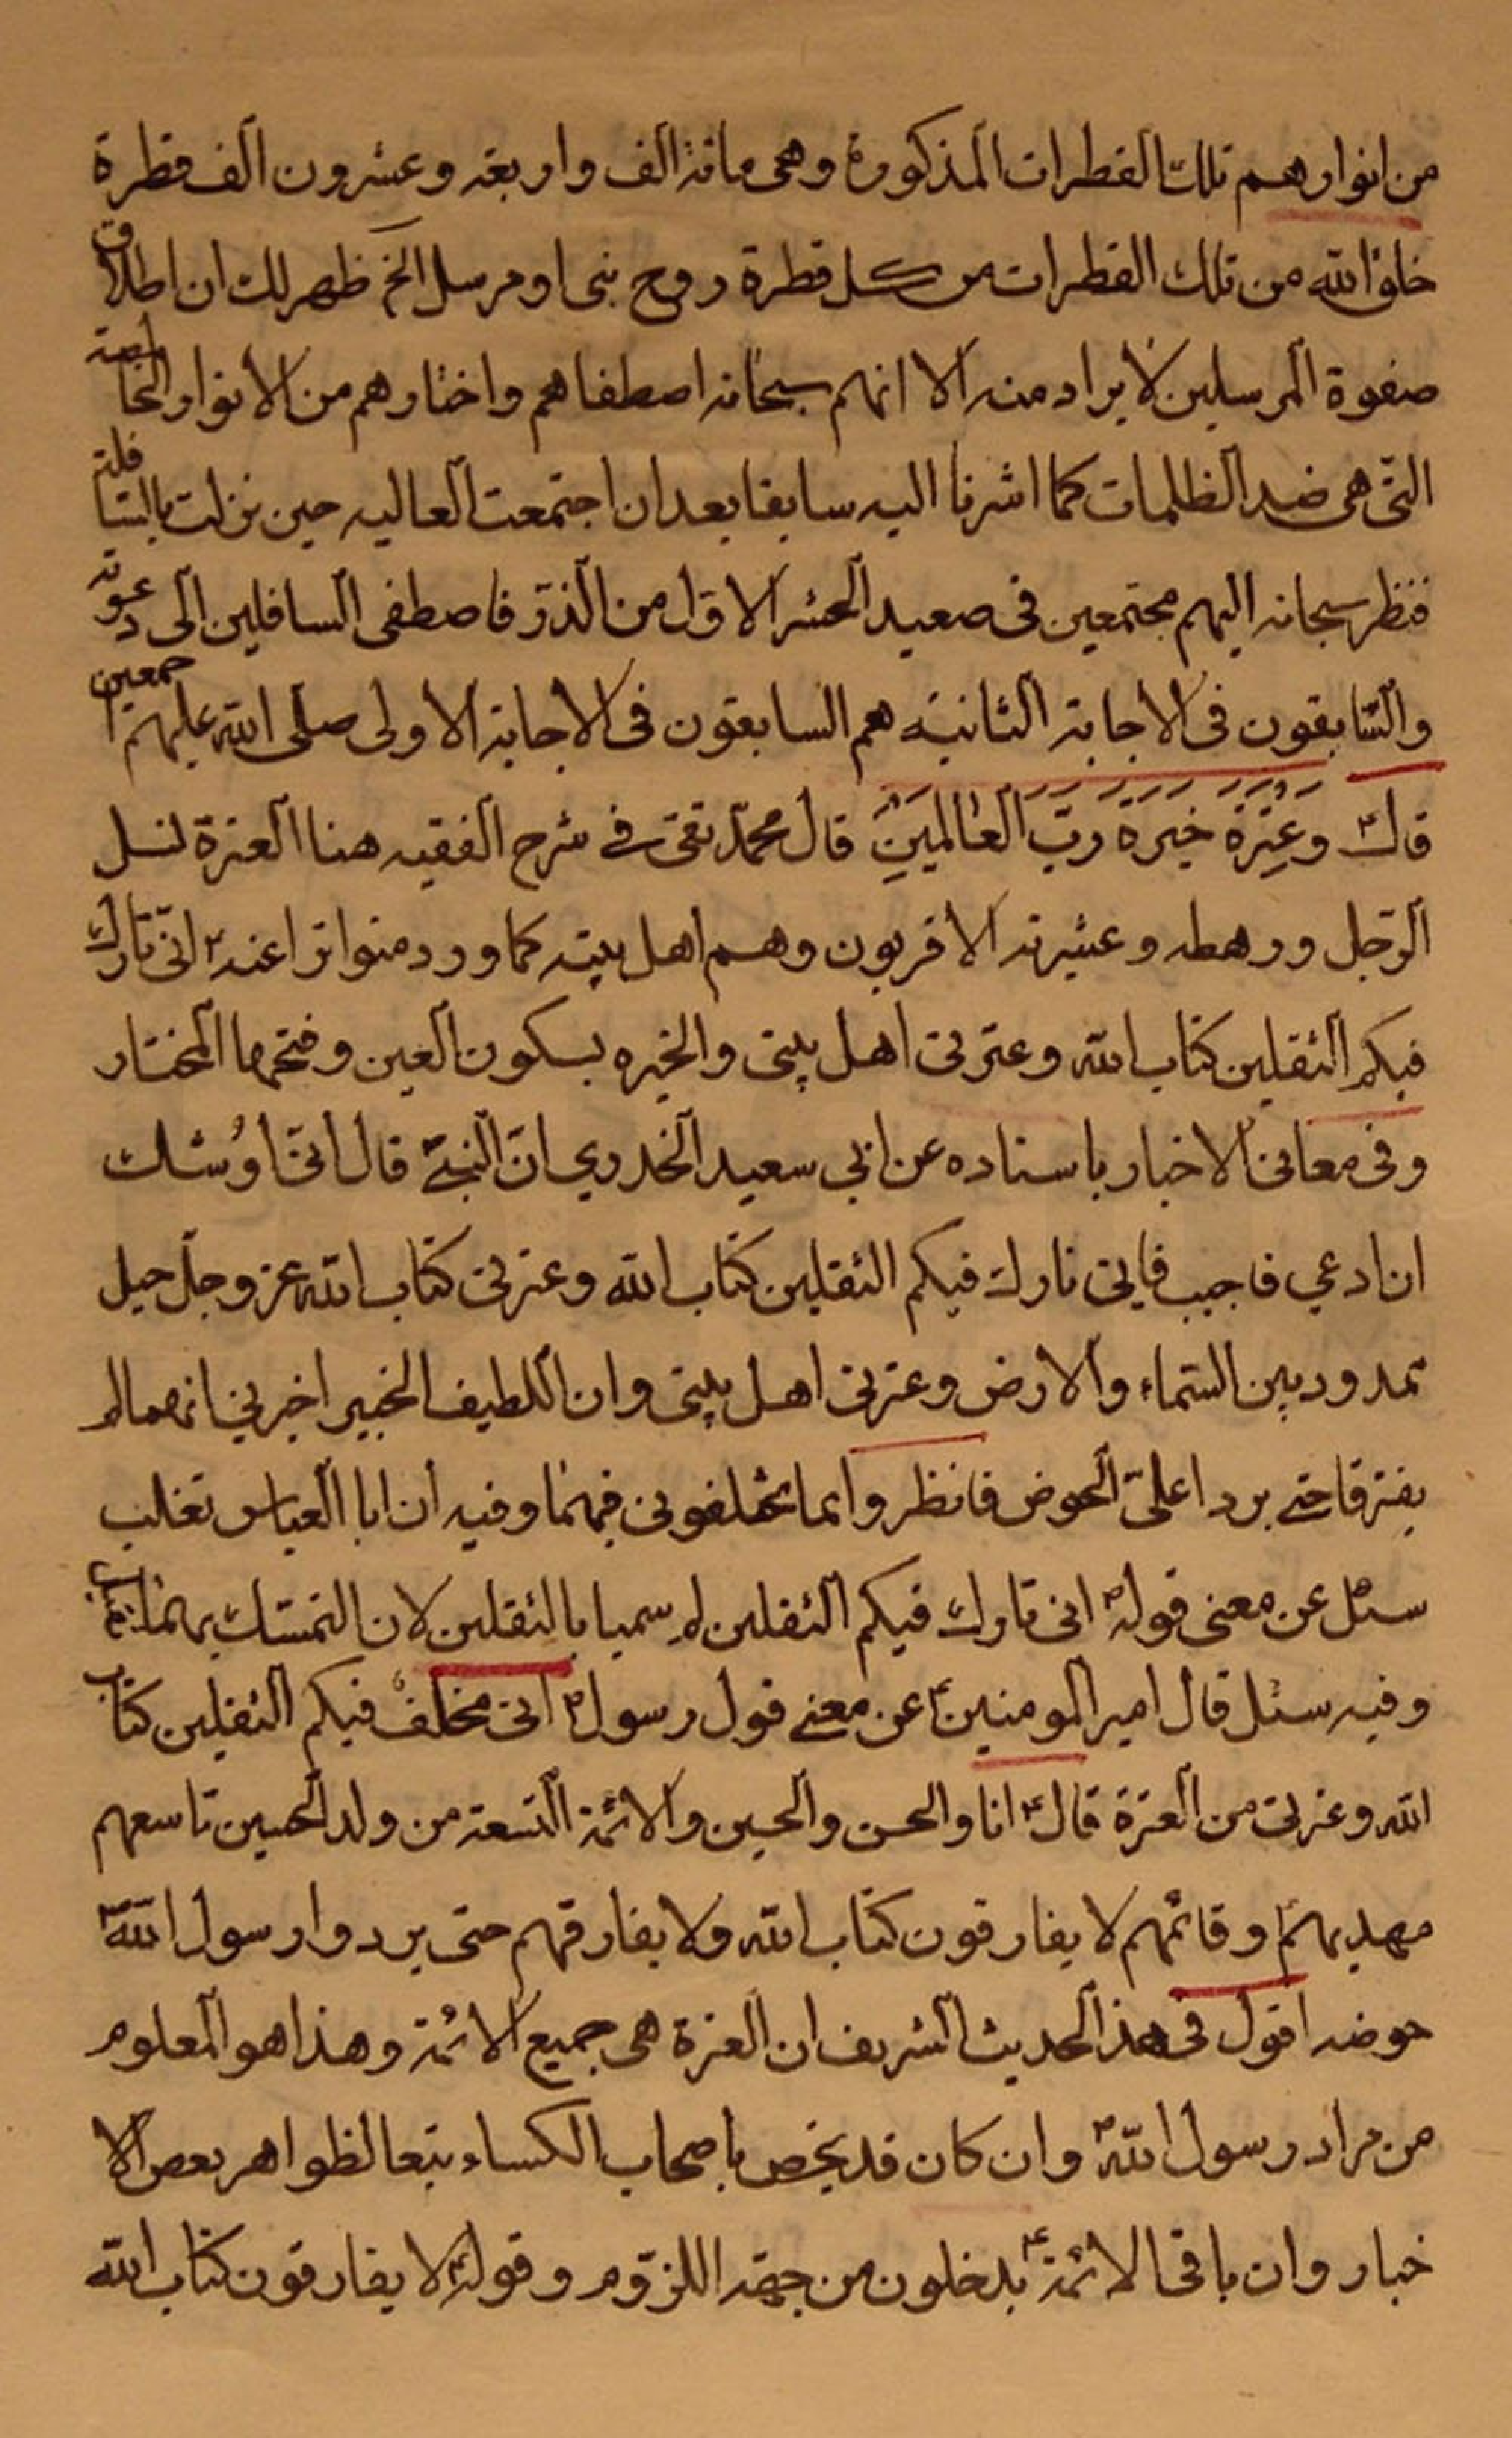 من انوارهم تلك القطرات المذكورة وهى مائة الف واربعة وعشرون الف قطرة
خلق الله من تلك القطرات من كل قطرة روح نبى او مرسل الخ ظهر لك ان اطلاق
صفوة المرسلين لا يراد منه الا انهم سبحانه اصطفاهم واختارهم من الانوار الخاصة
التى هى ضد الظلمات كما اشرنا اليه سابقا بعد ان اجتمعت العاليه حين نزلت بالسافلة
فنظر سبحانه اليهم مجتمعين فى صعيد الحشر الاول من الذر فاصطفى السافلين الى دعوته
والسابقون فى الاجابة الثانية هم السابقون فى الاجابة الاولى صلى الله عليهم اجمعين
قال ع وَعِتْرَةَ خِيَرَةِ رَبِّ الْعٰالَمِينَ قال محمد تقى فى شرح الفقيه هنا العترة نسل
الرجل ورهطه وعشيرته الاقربون وهم اهل بيته كما ورد متواترا عنه ص انى تارك
فيكم الثقلين كتاب الله وعترتى اهل بيتى والخيره بسكون العين وفتحها المختار
وفى معانى الاخبار باسناده عن ابي سعيد الخدري ان النبى ص قال انى اوُشك
ان ادعي فاجيب فانى تارك فيكم الثقلين كتاب الله وعترتى كتاب الله عز وجل حبل
ممدود بين السماء والارض وعترتى اهل بيتى وان اللطيف الخبير اخبرني انهما لم
يفترقا حتى يردا على الحوض فانظروا بما تخلفونى فيهما وفيه ان ابا العباس تغلب
سئل عن معنى قوله ص انى تارك فيكم الثقلين لم سميا بالثقلين لان التمسك بهما ثقيل
وفيه سئل قال امير المومنين ع عن معنى قول رسول ص انى مخلف فيكم الثقلين كتاب
الله وعترتى من العترة قال ع انا والحسن والحسين والائمة التسعة من ولد الحسين تاسعهم
مهديهم وقائمهم لا يفارقون كتاب الله ولا يفارقهم حتى يردوا رسول الله ص
حوضه اقول فى هذا الحديث الشريف ان العترة هى جميع الائمة وهذا هو المعلوم
من مراد رسول الله ص وان كان قد يخص باصحاب الكساء تبعا لظواهر بعض الا
خبار وان باقى الائمة ع يدخلون من جهة اللزوم وقوله ع لا يفارقون كتاب الله